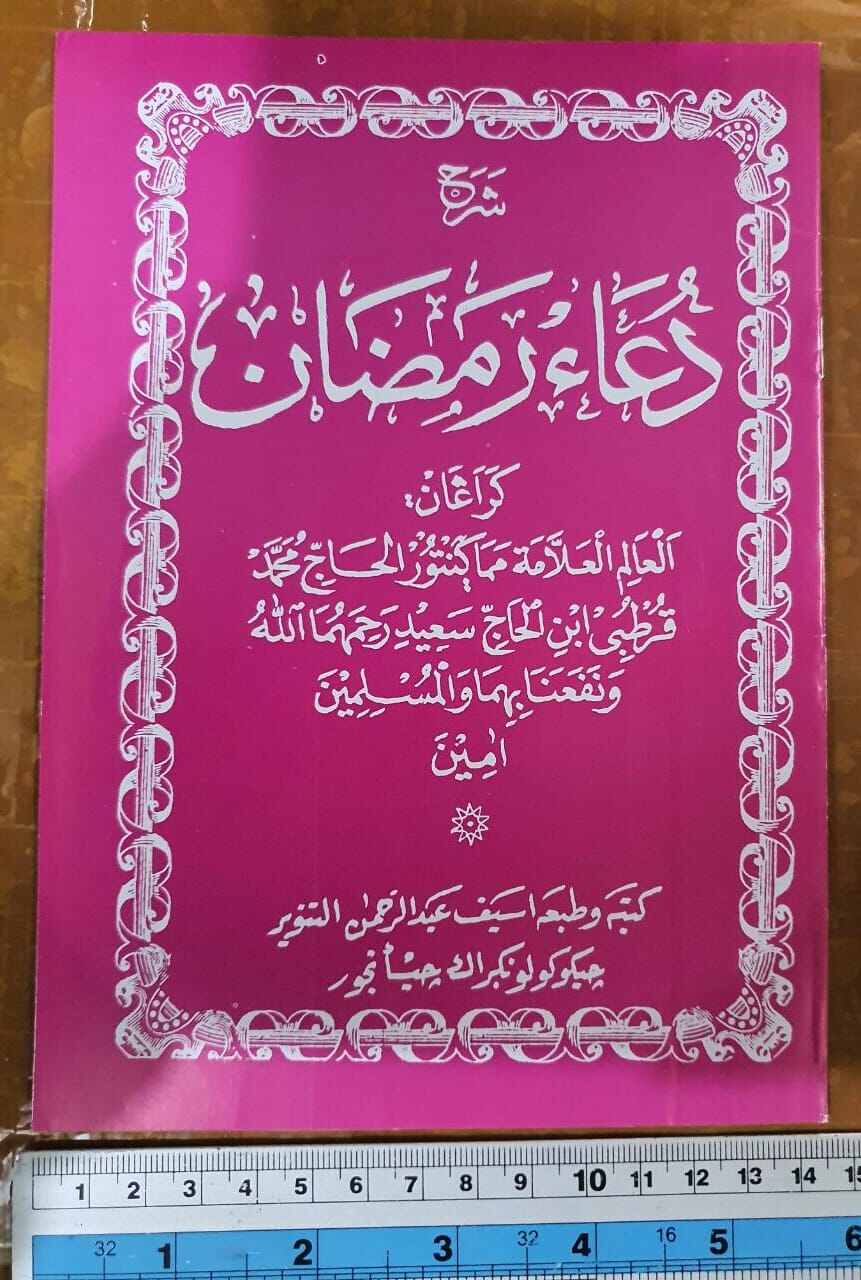 شَرَح
دُعَاءِ رَمَضَان
كَرَاڠَانْ:
اَلْعَالِمِ الْعَلاَّمَةِ مَمَا كَنْتُوْرْ الْحَاجّ مُحَمَّدْ
قُرْطُبِىْ ابْنِ الْحَاجِّ سَعِيْدِ رَحِمَهُمَا اللّٰهُ
وَنَفَعَنَا بِهِمَا وَالْمُسْلِمِيْنَ
اٰمِيْنَ
كتبه وطبعه اسيف عبد الرحمن التنوير
چيكوكولونكراك چيأنجور
1 2 3 4 5 6 7 8 9 10 11 12 13 14 15
32 1 2 3 32 4 16 5 6